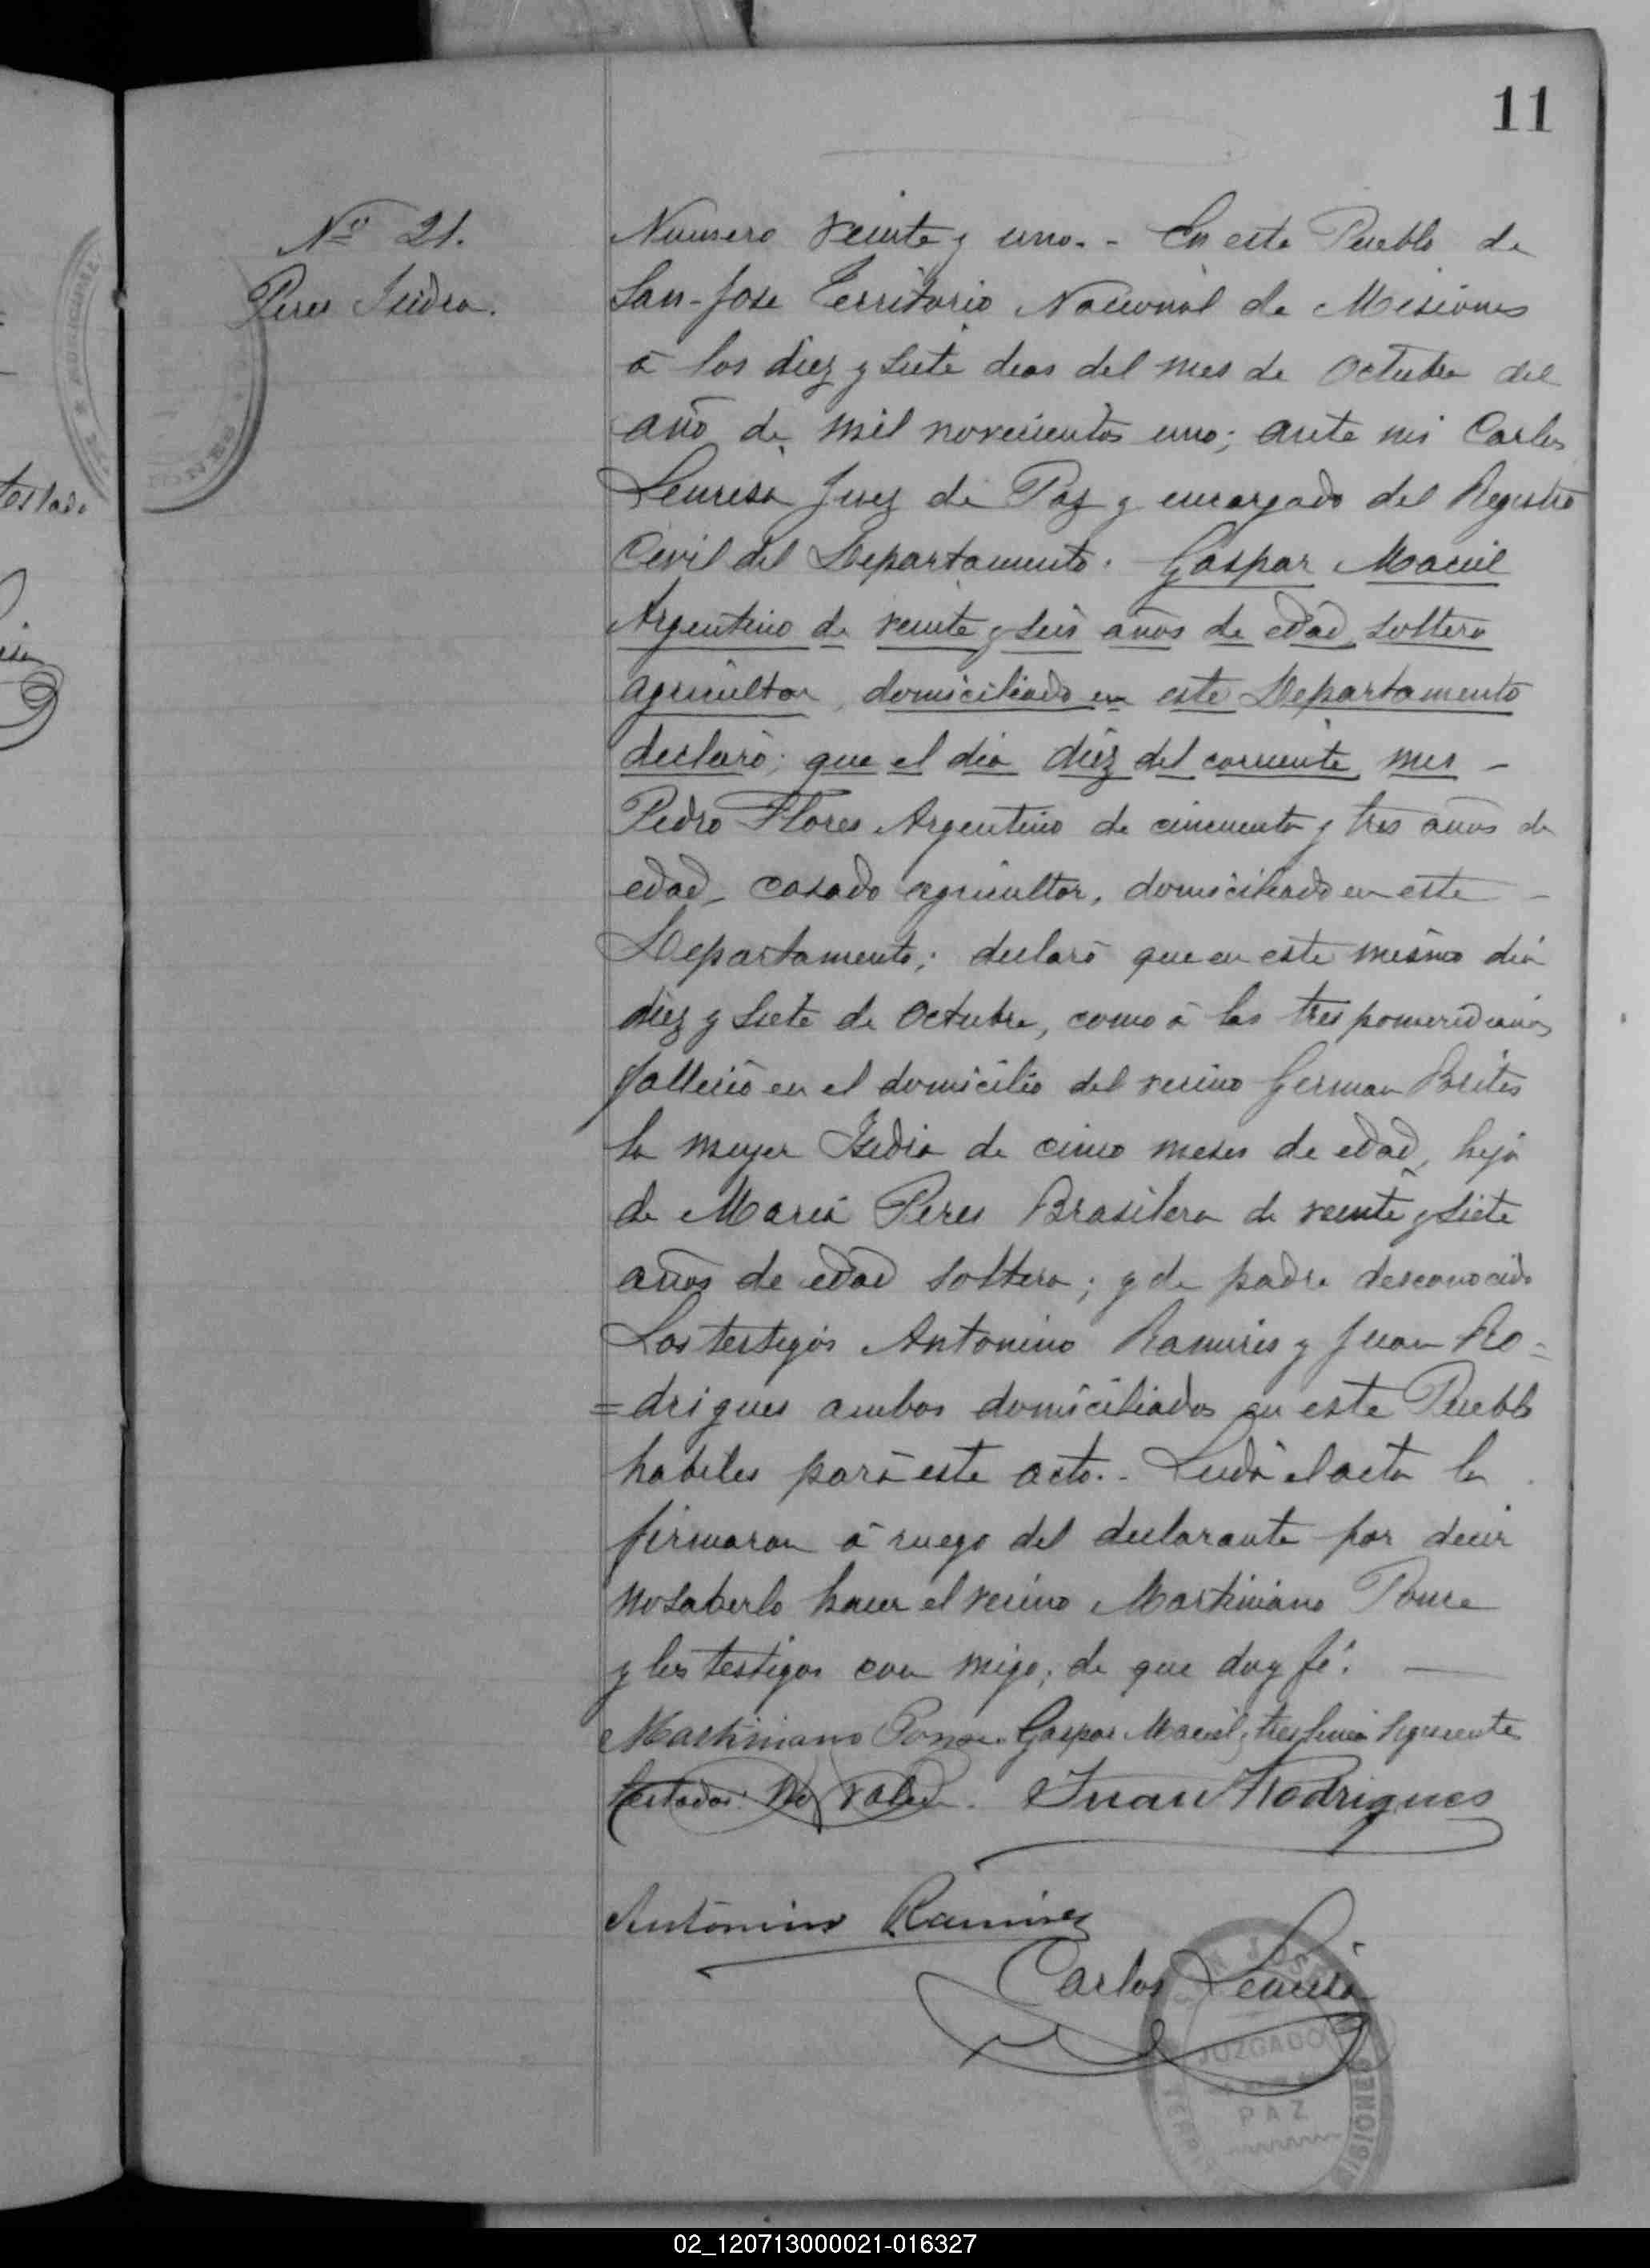 11
Nº 21.
Peres Isidra.
Numero veinte y uno. - En este Pueblo de
San-Jose Territorio Nacional de Misiones
á los diez y siete dias del mes de Octubre del
año de mil novecientos uno; ante mi Carlos
Juez de Paz y encargado del Registro
Civil del Departamento. Gaspar Maciel
Argentino de veinte y seis años de edad, soltero
agricultor, domiciliado en este Departamento
declaró; que el dia diez del corriente mes -
Pedro Flores Argentino de cincuenta y tres años de
edad, casado agricultor, domiciliado en este -
Departamento; declaró que en este mismo dia
diez y siete de Octubre, como á las tres pomeridianas
falleció en el domicilio del vecino German Brites
la mujer Isidra de cinco meses de edad, hija
de Maria Peres Brasilera de veinte y siete
años de edad soltera; y de padre desconocido
Los testigos Antonino Ramires y Juan Ro=
=drigues ambos domiciliados en este Pueblo
habiles para este acto. - Leida el acta la
firmaron á ruego del declarante por decir
no saberlo hacer el vecino Martiniano Ponce
y los testigos con migo; de que doy fé. —
Martiniano Ponce. Gaspar Maciel, tres linea siguiente
testado: No vale. Juan Rodrigues
Antonino Ramirez
Carlos
SAN JOSE
JUZGADO
PAZ
MISIONES
02_120713000021-016327